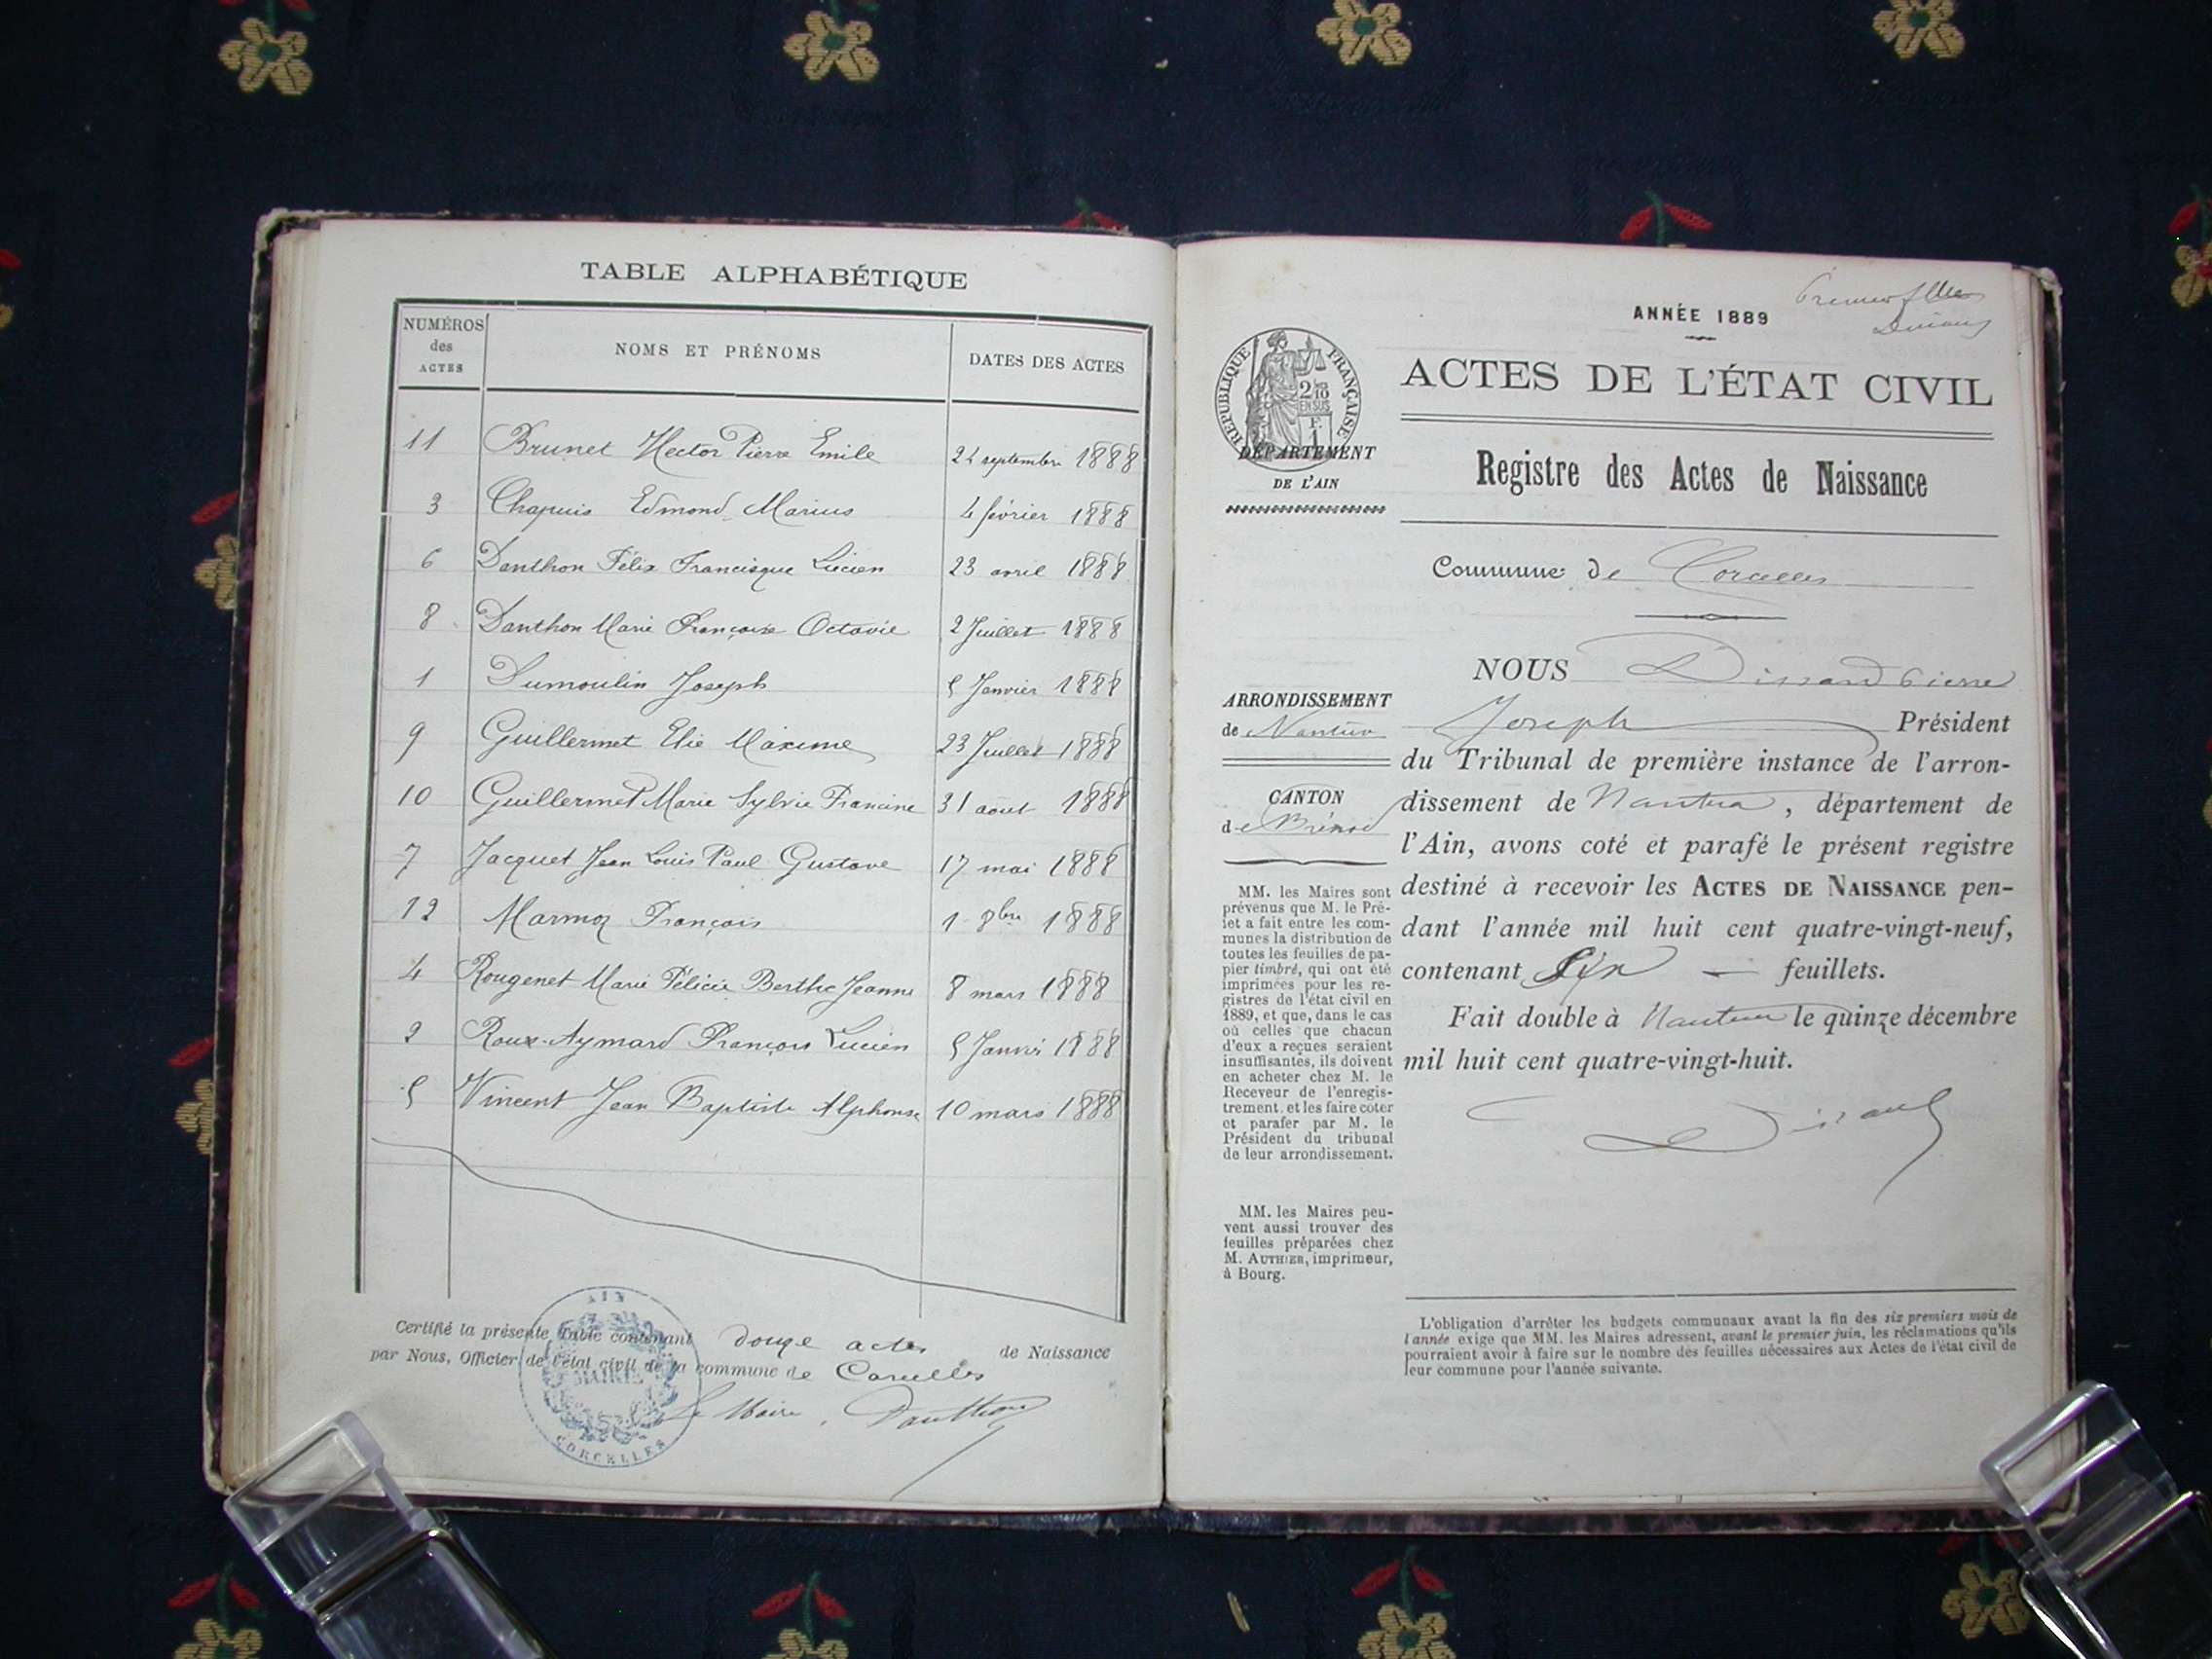 TABLE ALPHABÉTIQUE
NUMÉROS
des
ACTES
NOMS ET PRÉNOMS
DATES DES ACTES
11 Brunet Hector Pierre Emile 24 septembre 1888
3 Chapuis Edmond Marius 4 février 1888
6 Danthon Félix Francisque Lucien 23 avril 1888
8 Danthon Marie Françoise Octavie 2 Juillet 1888
1 Dumoulin Joseph 5 Janvier 1888
9 Guillermet Elie Maxime 23 Juillet 1888
10 Guillermet Marie Sylvie Francine 31 aout 1888
7 Jacquet Jean Louis Paul Gustave 17 mai 1888
12 Marmoz François 1 8bre 1888
4 Rougenet Marie Félicie Berthe Jeanne 8 mars 1888
2 Roux-Aymard François Lucien 5 Janvier 1888
5 Vincent Jean Baptiste Alphonse 10 mars 1888
Certifié la présente Table contenant douze actes de Naissance
par Nous, Officier de l'état civil de la commune de Corcelles
Le Maire, Danthon
AIN
MAIRIE
CORCELLES
ANNÉE 1889
Premier
RÉPUBLIQUE FRANÇAISE
2/10
EN SUS
F.
1
DÉPARTEMENT
DE L'AIN
ACTES DE L'ÉTAT CIVIL
Registre des Actes de Naissance
Commune de Corcelles
ARRONDISSEMENT
de Nantua
CANTON
de Brénod
MM. les Maires sont
prévenus que M. le Pré-
fet a fait entre les com-
munes la distribution de
toutes les feuilles de pa-
pier timbré, qui ont été
imprimées pour les re-
gistres de l'état civil en
1889, et que, dans le cas
où celles que chacun
d'eux a reçues seraient
insuffisantes, ils doivent
en acheter chez M. le
Receveur de l'enregis-
trement, et les faire coter
et parafer par M. le
Président du tribunal
de leur arrondissement.
MM. les Maires peu-
vent aussi trouver des
feuilles préparées chez
M. AUTHIER, imprimeur,
à Bourg.
NOUS Dissard Pierre
Joseph Président
du Tribunal de première instance de l'arron-
dissement de Nantua, département de
l'Ain, avons coté et parafé le présent registre
destiné à recevoir les ACTES DE NAISSANCE pen-
dant l'année mil huit cent quatre-vingt-neuf,
contenant Six feuillets.
Fait double à Nantua le quinze décembre
mil huit cent quatre-vingt-huit.
Dissard
L'obligation d'arrêter les budgets communaux avant la fin des six premiers mois de
l'année exige que MM. les Maires adressent, avant le premier juin, les réclamations qu'ils
pourraient avoir à faire sur le nombre des feuilles nécessaires aux Actes de l'état civil de
leur commune pour l'année suivante.